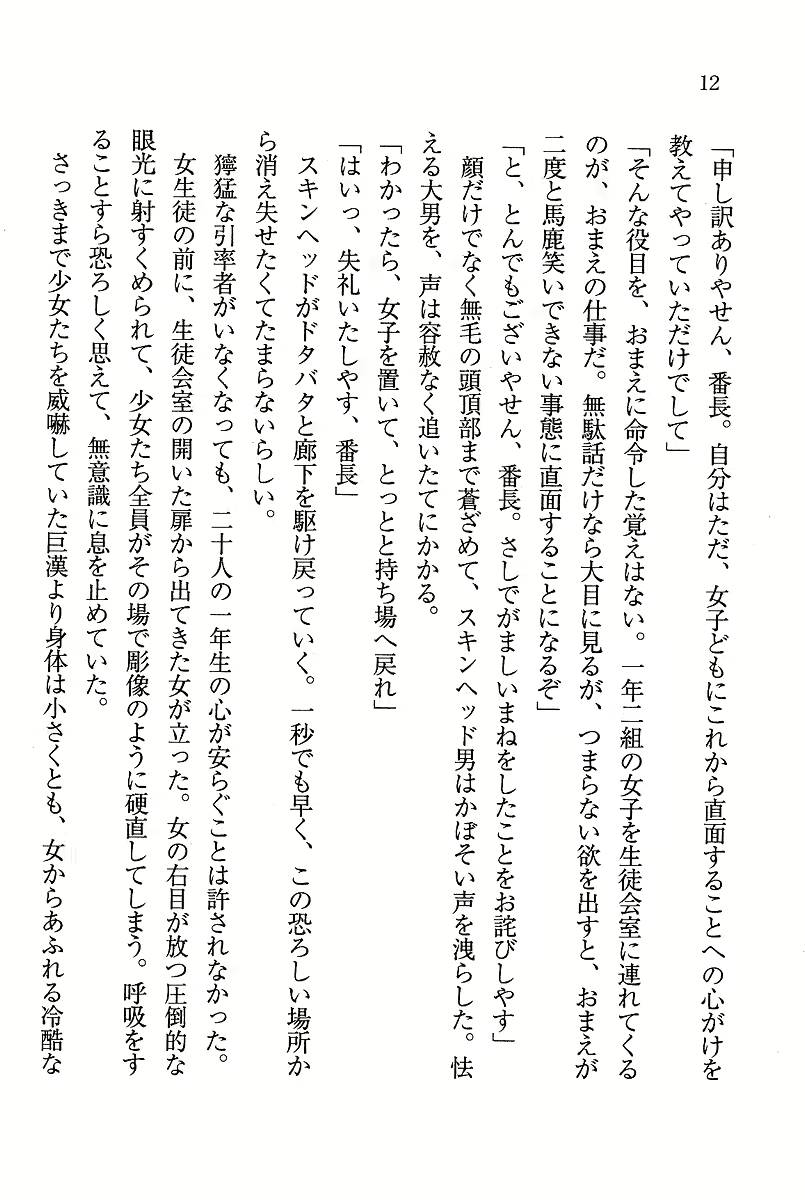 12
「申し訳ありやせん、番長。自分はただ、女子どもにこれから直面することへの心がけを
教えてやっていただけでして」
「そんな役目を、おまえに命令した覚えはない。一年二組の女子を生徒会室に連れてくる
のが、おまえの仕事だ。無駄話だけなら大目に見るが、つまらない欲を出すと、おまえが
二度と馬鹿笑いできない事態に直面することになるぞ」
「と、とんでもございやせん、番長。さしでがましいまねをしたことをお詫びしやす」
顔だけでなく無毛の頭頂部まで蒼ざめて、スキンヘッド男はかぼそい声を洩らした。怯
える大男を、声は容赦なく追いたてにかかる。
「わかったら、女子を置いて、とっとと持ち場へ戻れ」
「はいっ、失礼いたしやす、番長」
スキンヘッドがドタバタと廊下を駆け戻っていく。一秒でも早く、この恐ろしい場所か
ら消え失せたくてたまらないらしい。
獰猛な引率者がいなくなっても、二十人の一年生の心が安らぐことは許されなかった。
女生徒の前に、生徒会室の開いた扉から出てきた女が立った。女の右目が放つ圧倒的な
眼光に射すくめられて、少女たち全員がその場で彫像のように硬直してしまう。呼吸をす
ることすら恐ろしく思えて、無意識に息を止めていた。
さっきまで少女たちを威嚇していた巨漢より身体は小さくとも、女からあふれる冷酷な